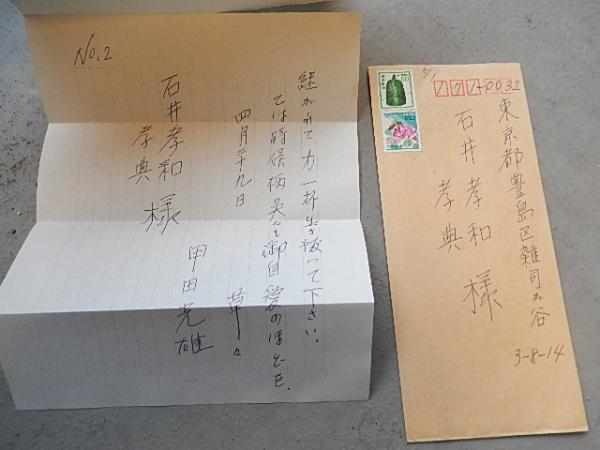 No.2
継がれて、力一杯生き抜いて下さい。
では時候柄呉々も御自愛のほどを。
草々
四月二十九日
甲田光雄
石井孝和
孝典 様
5/1
171-0032
東京都豊島区雑司が谷
3-8-14
石井孝和
孝典 様